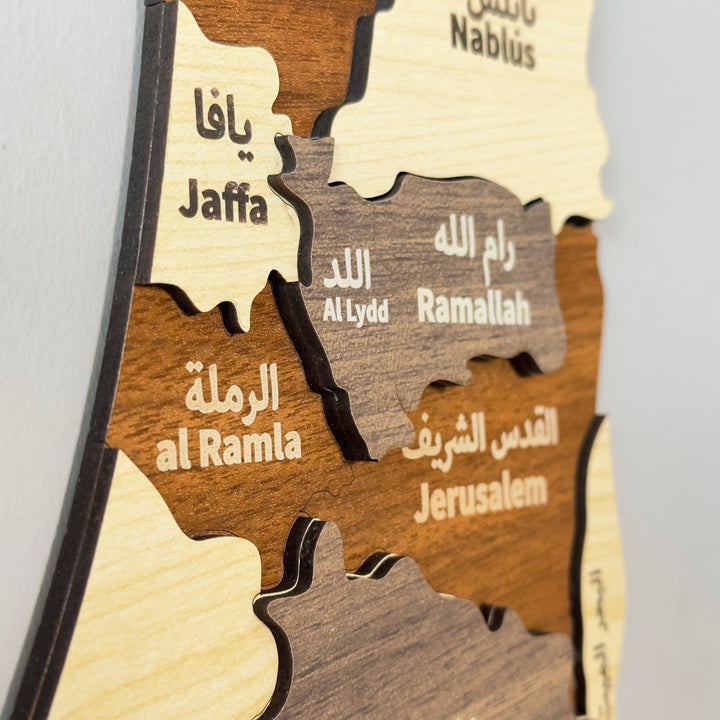 نابلس
Nablus
يافا
Jaffa
رام الله
Ramallah
اللد
Al Lydd
الرملة
al Ramla
القدس الشريف
Jerusalem
البحر الميت